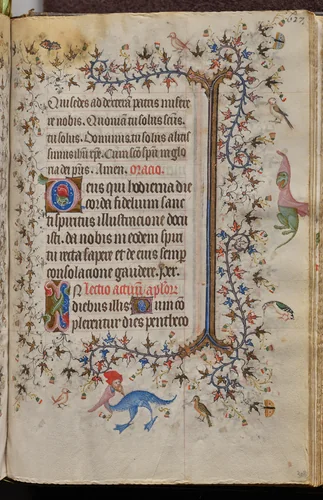 127
Qui sedes ad dexteram patris misere
re nobis. Quoniam tu solus scūs.
tu solus. Dominus tu solus altis
simus ihū xpe. Cum sc̄o spū in glo
ria dei pr̄is. Amen. oracio.
Deus qui hodierna die
corda fidelium sanc
ti spiritus illustracione docu
isti. da nobis in eodem spiri
tu recta sapere et de eius semp
consolacione gaudere. Per.
Lectio actuū aplor
IN diebus illis. Dum co
plerentur dies pentheco